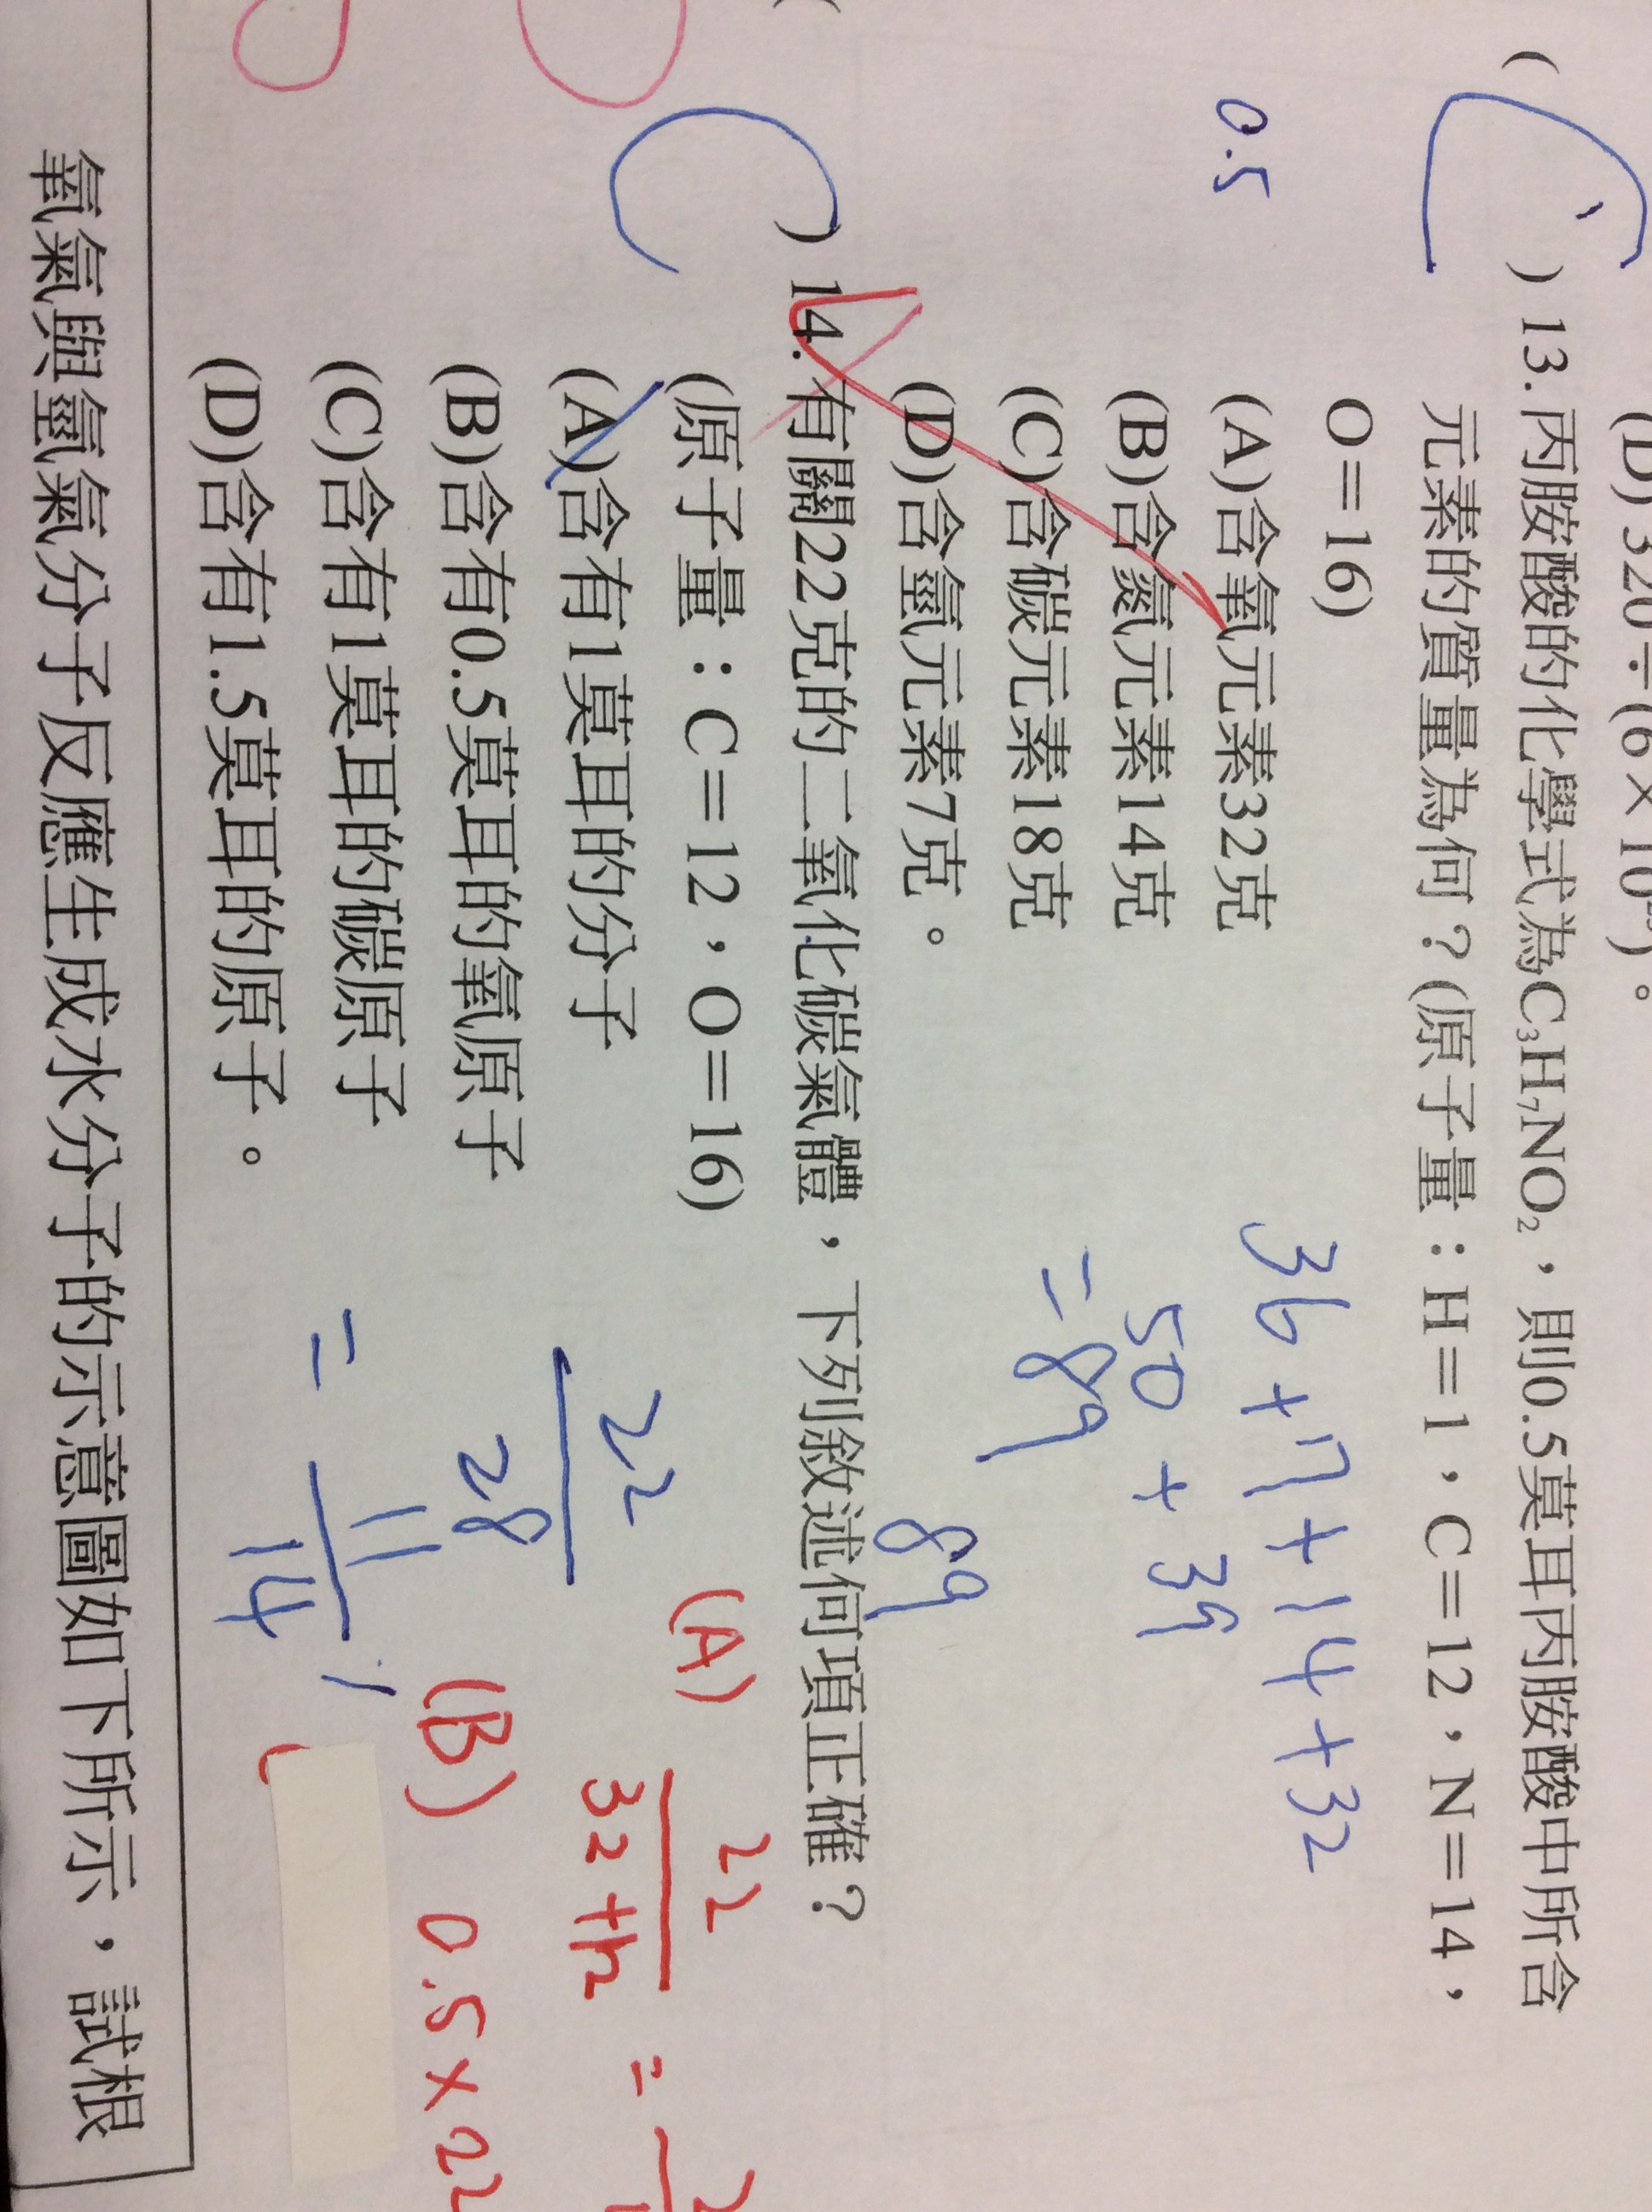 (D) 320÷(6×10
( C ) 13.丙胺酸的化學式為C₃H₇NO₂，則0.5莫耳丙胺酸中所含
元素的質量為何？(原子量：H＝1，C＝12，N＝14，
O＝16)
0.5
(A)含氧元素32克
(B)含氮元素14克
(C)含碳元素18克
(D)含氫元素7克。
36+7+14+32
50+39
=89
89
( C ) 14.有關22克的二氧化碳氣體，下列敘述何項正確？
(原子量：C＝12，O＝16)
(A)含有1莫耳的分子
(B)含有0.5莫耳的氧原子
(C)含有1莫耳的碳原子
(D)含有1.5莫耳的原子。
22
28
=
11
14
(A) 22
32+12 =
(B) 0.5×22
氧氣與氫氣分子反應生成水分子的示意圖如下所示，試根